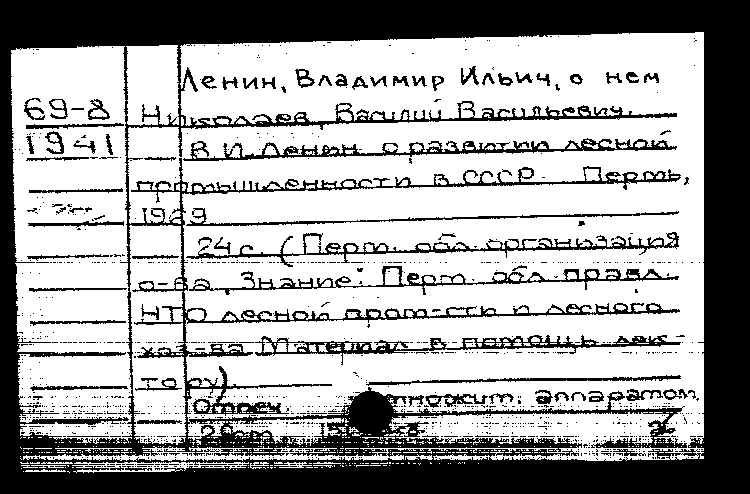 Ленин, Владимир Ильич, о нем
69-8 Николаев, Василий Васильевич.
1941 В.И. Ленин о развитии лесной
промышленности в СССР. Пермь,
1969
24 с. (Перм. обл. организация
о-ва "Знание". Перм. обл. правл.
НТО лесной пром-сти и лесного
хоз-ва Материал в помощь лек-
тору)
Отпеч. множит. аппаратом.